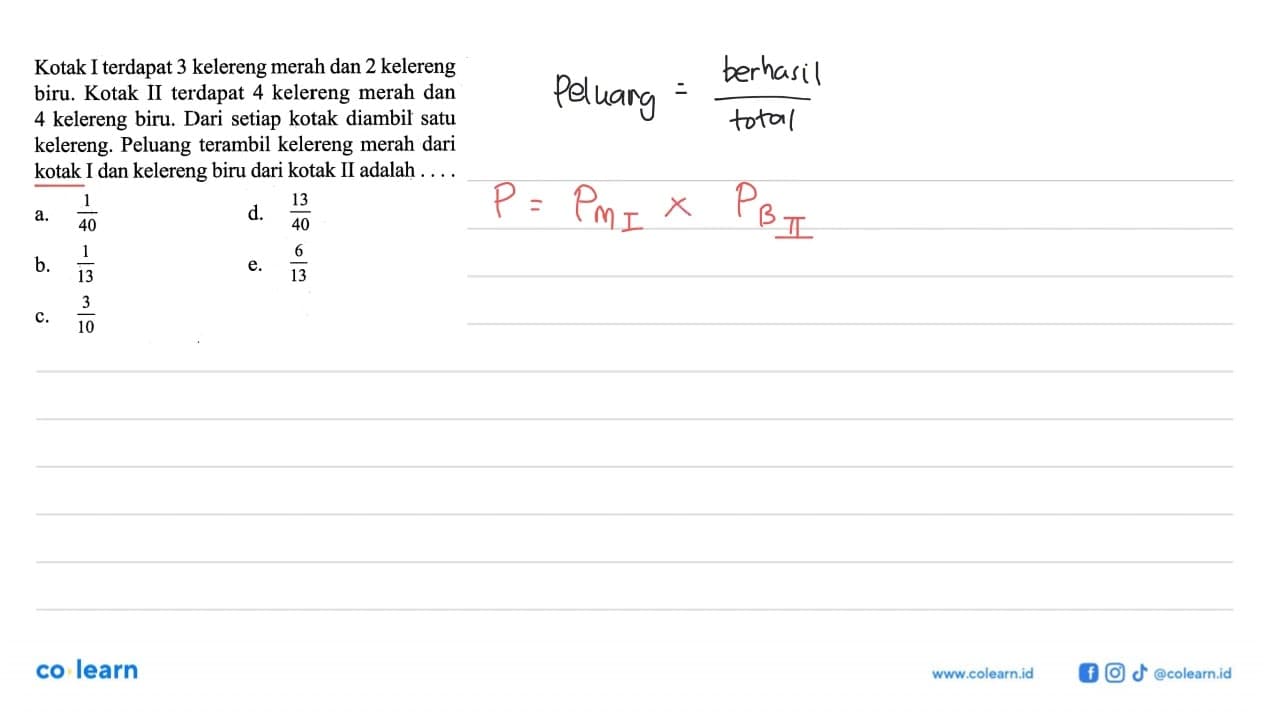 Kotak I terdapat 3 kelereng merah dan 2 kelereng
biru. Kotak II terdapat 4 kelereng merah dan
4 kelereng biru. Dari setiap kotak diambil satu
kelereng. Peluang terambil kelereng merah dari
kotak I dan kelereng biru dari kotak II adalah . . . .
a. 1/40
b. 1/13
c. 3/10
d. 13/40
e. 6/13
Peluang = berhasil/total
P = P_{M I} × P_{B II}
co learn
www.colearn.id
@colearn.id